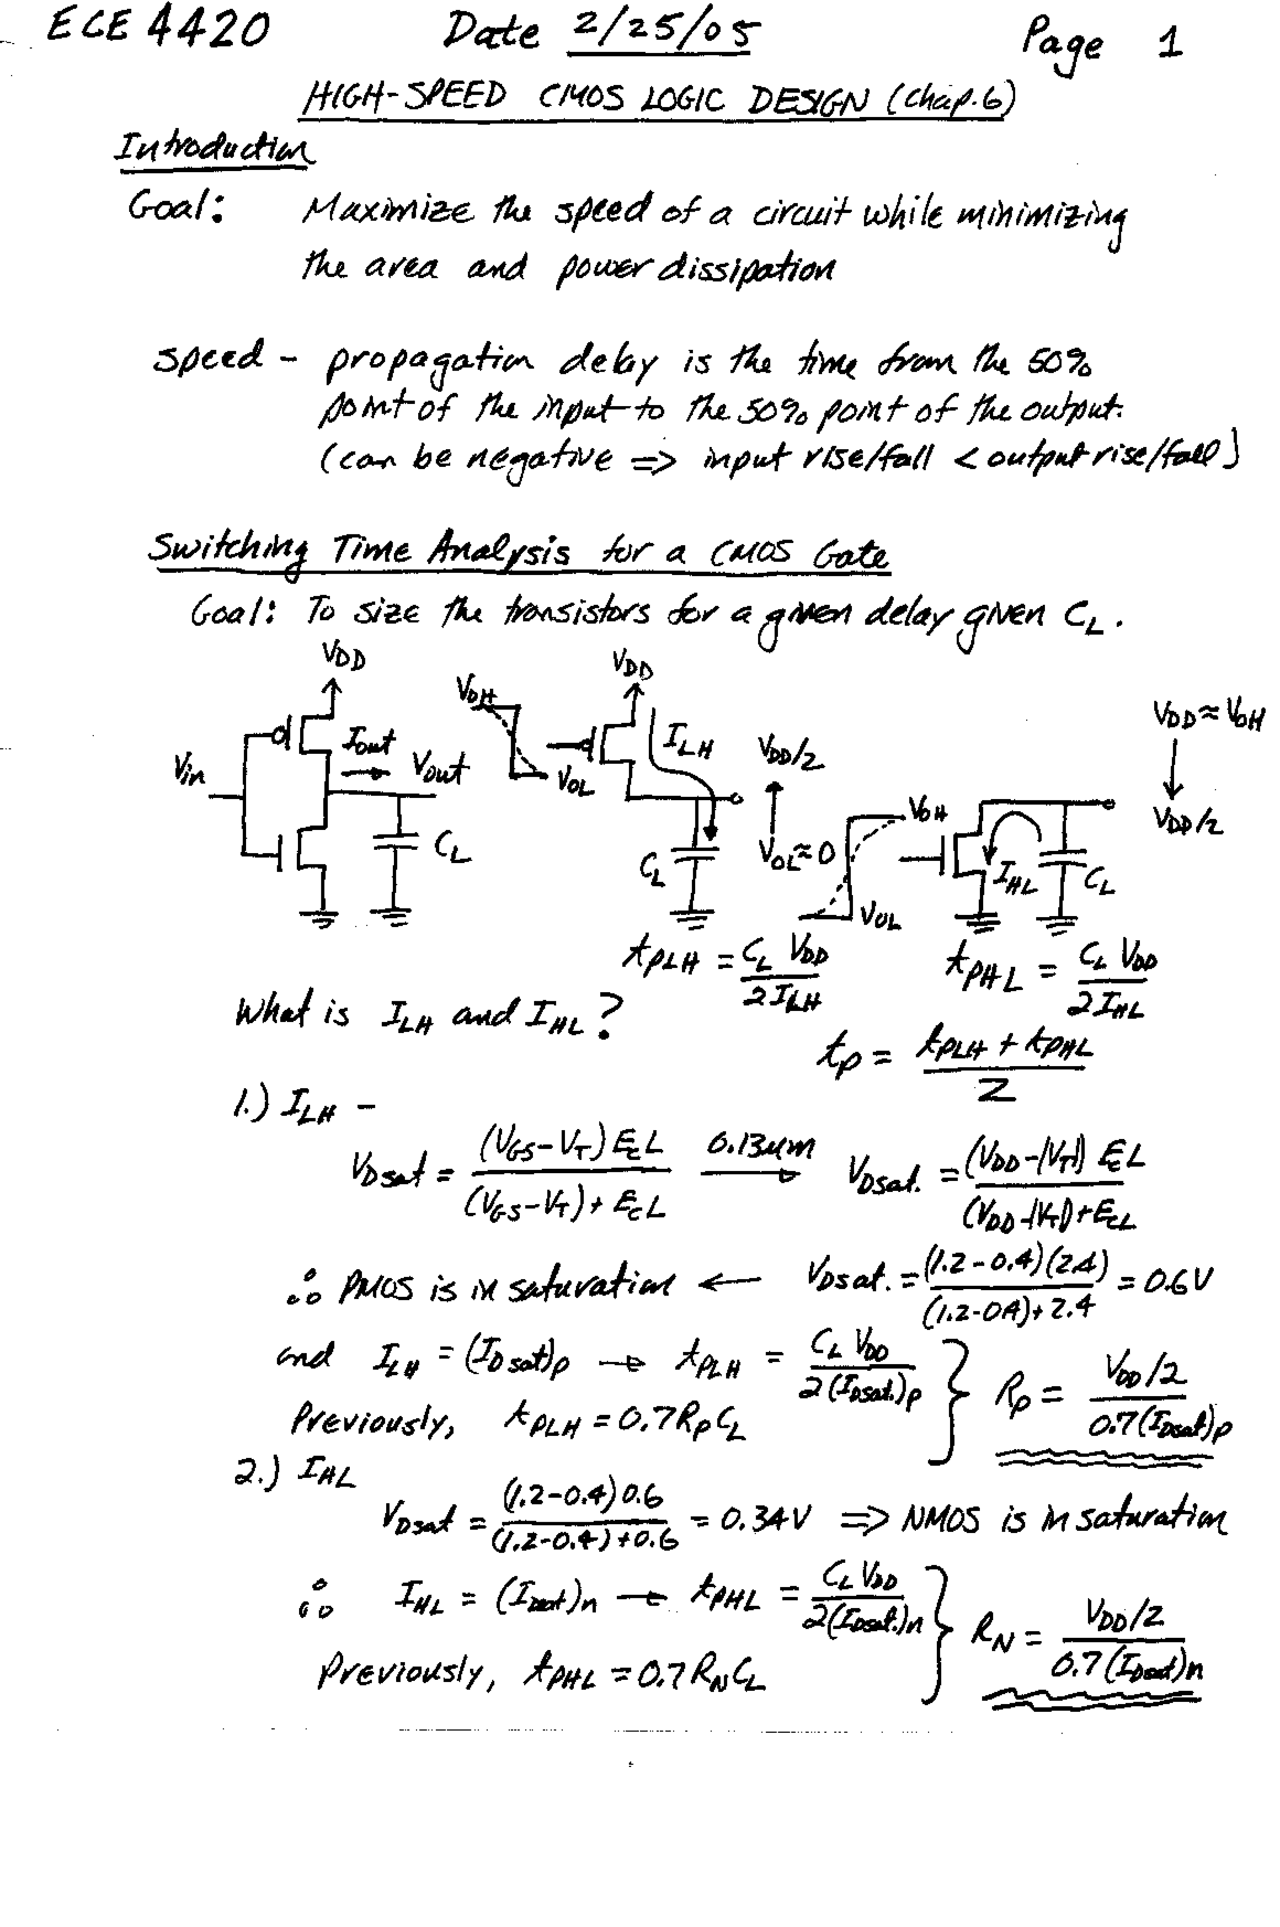 ECE 4420 Date 2/25/05 Page 1
HIGH-SPEED CMOS LOGIC DESIGN (Chap.6)
Introduction
Goal: Maximize the speed of a circuit while minimizing
the area and power dissipation
speed - propagation delay is the time from the 50%
point of the input to the 50% point of the output.
(can be negative => input rise/fall < output rise/fall)
Switching Time Analysis for a CMOS Gate
Goal: To size the transistors for a given delay given C_L.
V_DD V_OH V_DD V_DD ≈ V_OH
I_out I_LH V_DD/2
V_in V_out V_OL V_OH V_DD/2
C_L C_L V_OL ≈ 0 I_HL C_L
V_OL
t_PLH = C_L V_DD / 2 I_LH t_PHL = C_L V_DD / 2 I_HL
What is I_LH and I_HL?
t_p = (t_PLH + t_PHL) / 2
1.) I_LH -
V_Dsat = (V_GS - V_T) E_c L / ((V_GS - V_T) + E_c L) 0.13um → V_Dsat. = (V_DD - |V_T|) E_c L / ((V_DD - |V_T|) + E_c L)
∴ PMOS is in saturation ← V_Dsat. = (1.2 - 0.4)(2.4) / ((1.2 - 0.4) + 2.4) = 0.6V
and I_LH = (I_Dsat)p → t_PLH = C_L V_DD / 2(I_Dsat.)p } R_p = V_DD/2 / 0.7(I_Dsat)p
Previously, t_PLH = 0.7 R_p C_L
2.) I_HL
V_Dsat = (1.2 - 0.4) 0.6 / ((1.2 - 0.4) + 0.6) = 0.34V => NMOS is in saturation
∴ I_HL = (I_Dsat)n → t_PHL = C_L V_DD / 2(I_Dsat.)n } R_N = V_DD/2 / 0.7(I_Dsat)n
Previously, t_PHL = 0.7 R_N C_L